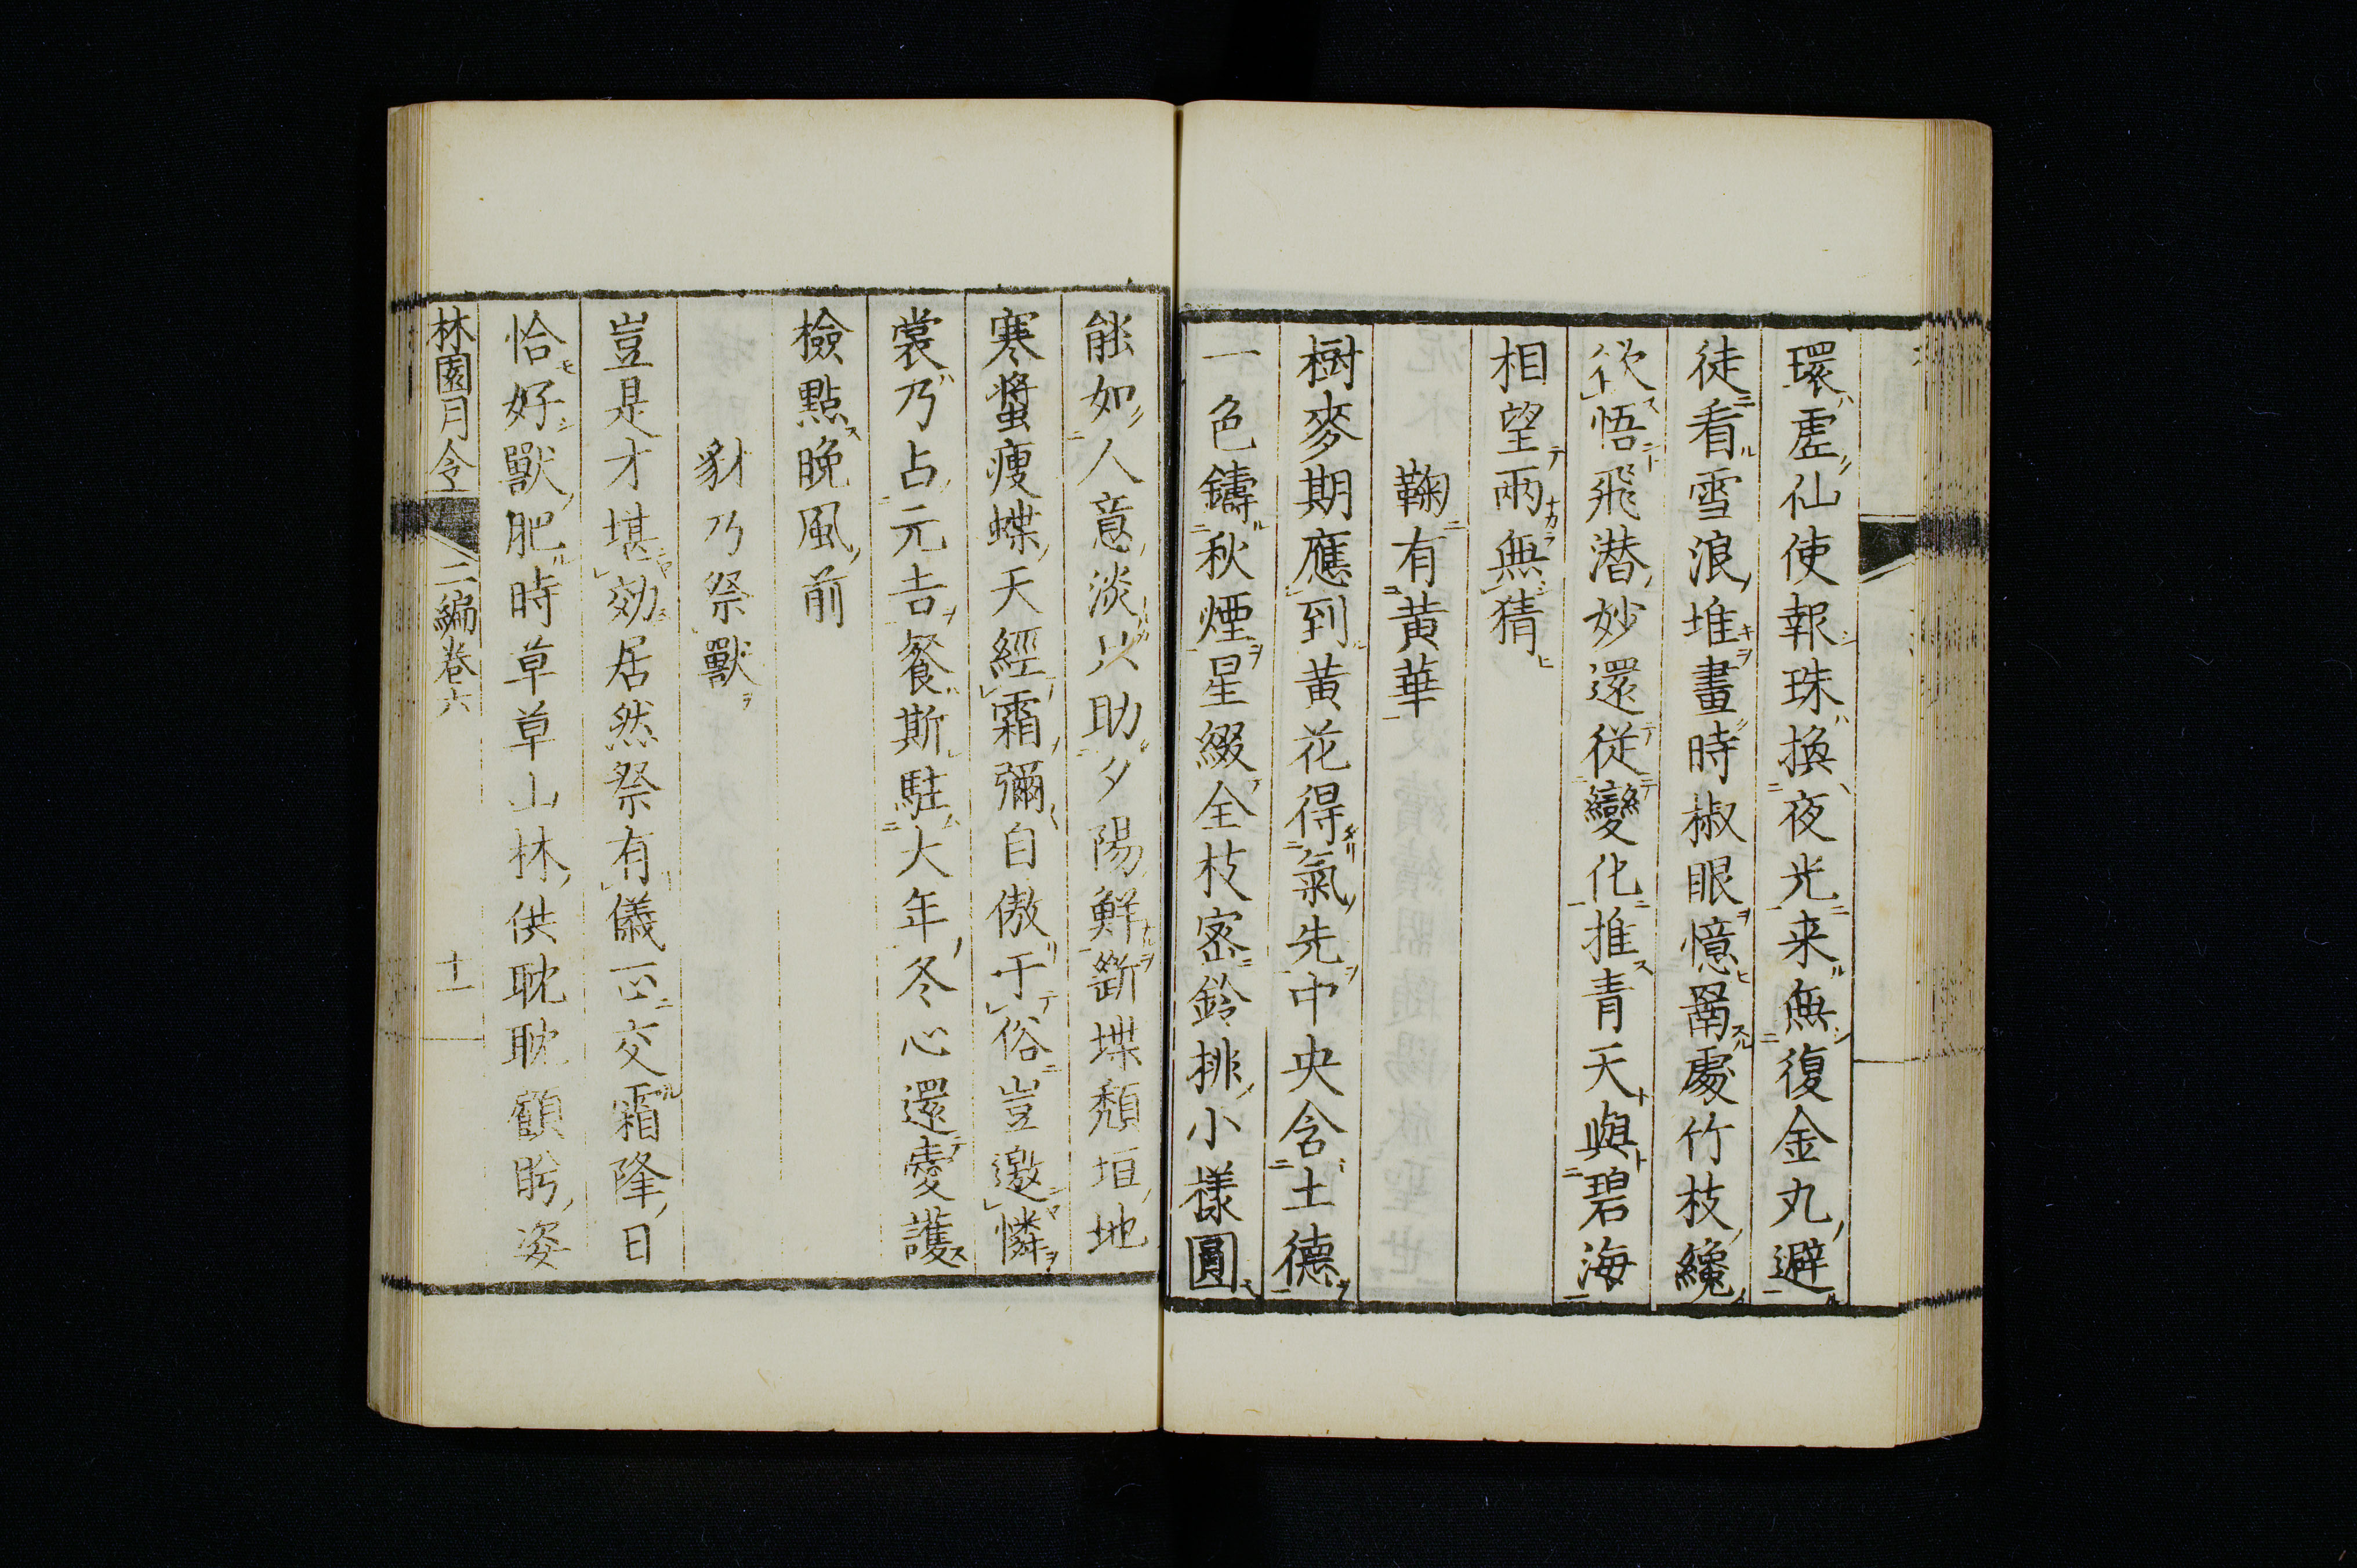 環虗仙使報珠換夜光来無復金丸避
徒看雪浪堆畫時椒眼憶罱處竹枝纔
欲悟飛潜妙還従變化推青天與碧海
相望兩無猜
鞠有黄華
樹麥期應到黄花得氣先中央含土德
一色鑄秋煙星綴全枝密鈴排小樣圓
能如人意淡以助夕陽鮮斷堞頽垣地
寒螿瘦蝶天經霜彌自傲于俗豈邀憐
裳乃占元吉餐斯駐大年冬心還愛護
檢點晩風前
豺乃祭獸
豈是才堪効居然祭有儀正交霜隆日
恰好獸肥時草草山林供耽耽顧盻姿
林園月令 二編卷六 十一